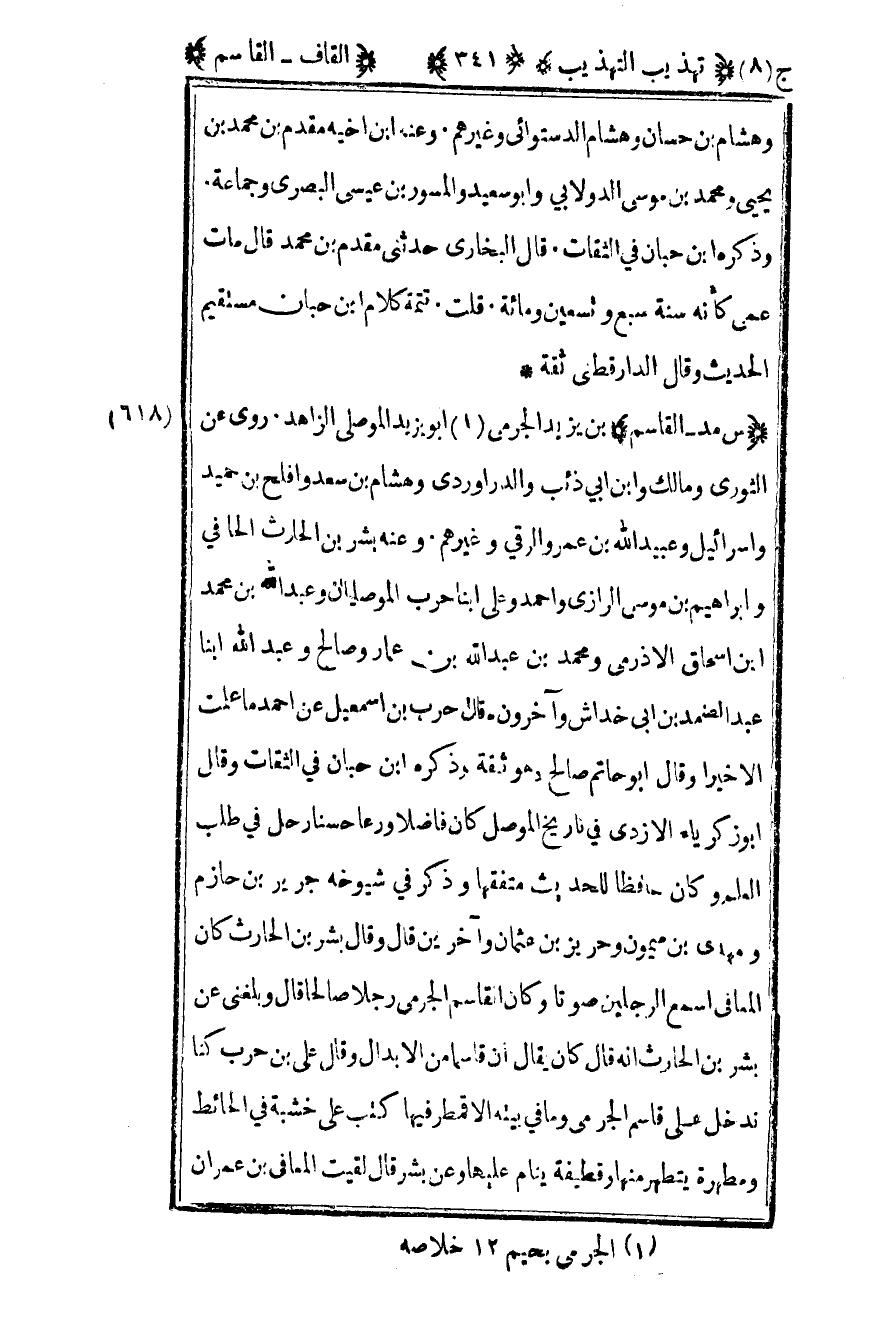 ج (٨) ﴿ تهذيب التهذيب ﴾ ﴿ ٣٤١ ﴾ ﴿ القاف ـ القاسم ﴾
وهشام بن حسان وهشام الدستوائى وغيرهم · وعنه ابن اخيه مقدم بن محمد بن
يحيى ومحمد بن موسى الدولابي وابو سعيد والمسور بن عيسى البصرى وجماعة ·
وذكره ابن حبان في الثقات · قال البخارى حدثنى مقدم بن محمد قال مات
عمى كأنه سنة سبع وتسعين ومائة · قلت · تتمة كلام ابن حبان مستقيم
الحديث وقال الدارقطنى ثقة *
﴿ س مد ـ القاسم ﴾ بن يزيد الجرمى (١) ابو يزيد الموصلى الزاهد · روى عن (٦١٨)
الثورى ومالك وابن ابي ذئب والدراوردى وهشام بن سعد وافلح بن حميد
واسرائيل وعبيد الله بن عمرو الرقي وغيرهم · وعنه بشر بن الحارث الحافي
وابراهيم بن موسى الرازى واحمد وعلى ابنا حرب الموصليان وعبد الله بن محمد
ابن اسحاق الاذرمى ومحمد بن عبد الله بن عمار وصالح وعبد الله ابنا
عبد الصمد بن ابى خداش وآخرون · قال حرب بن اسمعيل عن احمد ما علمت
الا خيرا وقال ابو حاتم صالح وهو ثقة وذكره ابن حبان في الثقات وقال
ابو زكرياء الازدى في تاريخ الموصل كان فاضلا ورعا حسنا رحل في طلب
العلم وكان حافظا للحديث متفقها وذكر في شيوخه جرير بن حازم
ومهدى بن ميمون وحريز بن عثمان وآخرين قال وقال بشر بن الحارث كان
المعافى اسمع الرجلين صوتا وكان القاسم الجرمى رجلا صالحا قال وبلغنى عن
بشر بن الحارث انه قال كان يقال ان قاسما من الابدال وقال على بن حرب كنا
ندخل على قاسم الجرمى وما في بيته الا قمطر فيها كتب على خشبة في الحائط
ومطهرة يتطهر منها وقطيفة ينام عليها وعن بشر قال لقيت المعافى بن عمران
(١) الجرمى بجيم ١٢ خلاصه